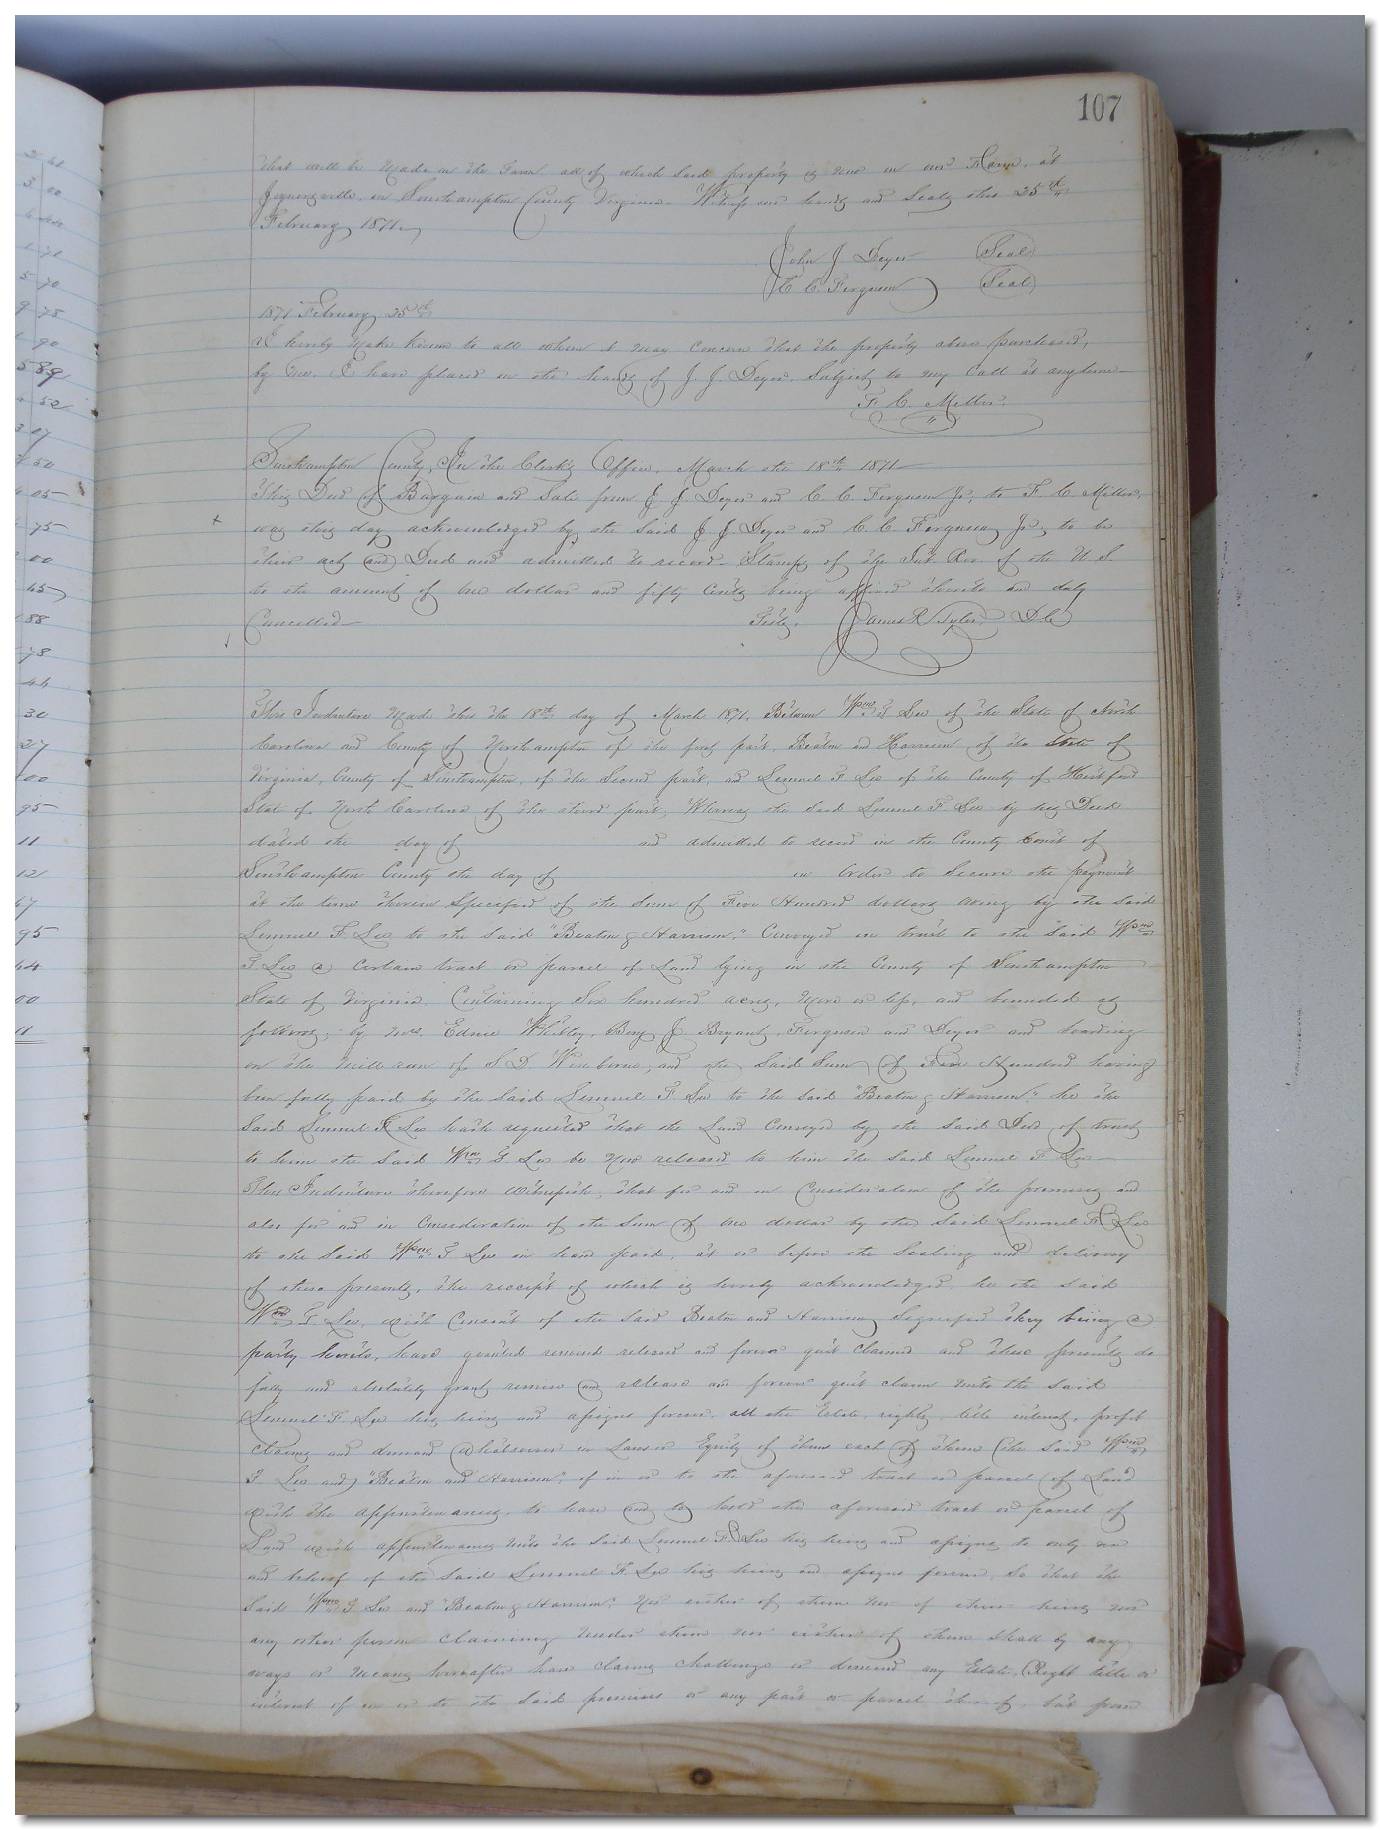 107
that will be made on the Farm all of which said property is now on our Farm, at
in Southampton County Virginia. Witness our hands and Seals this 25th
February 1871
John J Deyer Seal
C C Ferguson Seal
1871 February 25th
I hereby make known to all whom it may concern that the property above purchased,
by me. I have placed in the hands of J. J. Deyer. Subject to my Call at anytime
F. C. Miller
Southampton County, In the Clerk's Office, March the 18th 1871
This Deed of Bargain and Sale from J J Deyer and C C Ferguson Jr, to F C Miller,
was this day acknowledged by the said J J Deyer and C. C. Ferguson Jr, to be
their act and Deed and admitted to record. Stamps of the Int. Rev. of the U S
to the amount of one dollar and fifty Cents being affixed thereto and duly
Cancelled Teste, James R Tyler D C
This Indenture Made this the 18th day of March 1871, Between Wm T Lee of the State of North
Carolina and County of Northampton of the first part, Beaton and Harrison of the State of
Virginia, County of Southampton, of the Second part, and Lemuel F Lee of the County of Hertford
State of North Carolina of the third part, Whereas the said Lemuel F. Lee by his Deed
dated the day of and admitted to record in the County Court of
Southampton County the day of in Order to Secure the payment
at the time therein Specified of the Sum of Five Hundred dollars owing by the said
Lemuel F. Lee to the said "Beaton & Harrison," Conveyed in trust to the said Wm
T Lee a Certain tract or parcel of Land lying in the County of Southampton
State of Virginia. Containing Six hundred acres, More or less, and bounded as
follows; by Mrs. Edna Whitley, Benj J Bryant, Ferguson and Deyer and
on the Mill run of S D Winborne, and the said Sum of Five Hundred having
been fully paid by the said Lemuel F Lee to the said "Beaton & Harrison," he the
said Lemuel F Lee hath requested that the Land Conveyed by the said Deed of trust
to him the said Wm T Lee be now released to him the said Lemuel F Lee
This Indenture therefore witnesseth, that for and in Consideration of the premises and
also for and in Consideration of the sum of one dollar by the said Lemuel F Lee
to the said Wm T Lee in hand paid, at or before the Sealing and delivery
of these presents, the receipt of which is hereby acknowledged he the said
Wm T. Lee, with Consent of the said Beaton and Harrison Signified they being a
party hereto, have granted remised released and forever quit Claimed and these presents do
fully and absolutely grant, remise and release and forever quit claim unto the said
Lemuel F. Lee his heirs and assigns forever. all the Estate, rights, title interest, profit
claims and demand Whatsoever in Law or Equity of them each of them (the said Wm
T Lee and) "Beaton and Harrison", of in or to the aforesaid tract or parcel of Land
with the appurtenances, to have and to hold the aforesaid tract or parcel of
Land with appurtenances unto the said Lemuel F Lee his heirs and assigns to only use
and behoof of the said Lemuel F. Lee his heirs and assigns forever, So that the
said Wm T Lee and "Beaton & Harrison", Nor either of them nor of their heirs nor
any other person claiming under them nor either of them shall by any
ways or Means hereafter have claim challenge or demand any Estate, Right title or
interest of in or to the said premises or any part or parcel thereof, but from